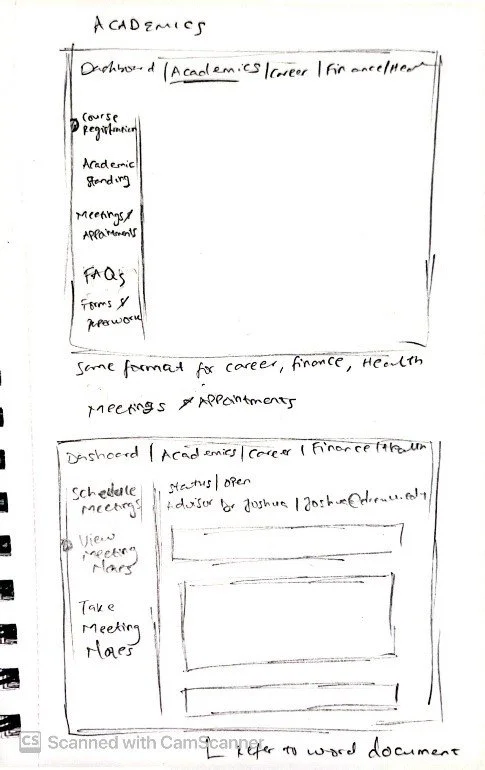 ACADEMICS
Dashboard | Academics | Career | Finance | Health
Course
Registration
Academic
Standing
Meetings &
Appointments
FAQs
Forms &
Paperwork
Same format for career, finance, Health
Meetings & Appointments
Dashboard | Academics | Career | Finance | Health
Schedule
Meetings
View
Meeting
Notes
Take
Meeting
Notes
Status | Open
Advisor Dr Joshua | Joshua@
refer to word document
CS Scanned with CamScanner